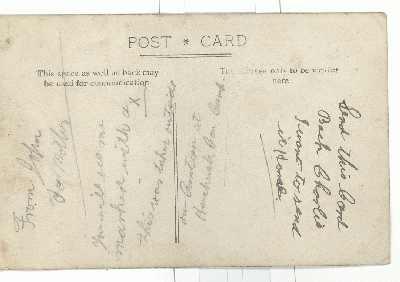 POST * CARD
This space as well as back may
be used for communication
The address only to be written
here
From John
You will see me
marked with a
X
this was taken outside
our Canteen at
Camp
Send this Card
Back Charlie
I want to send
it Home